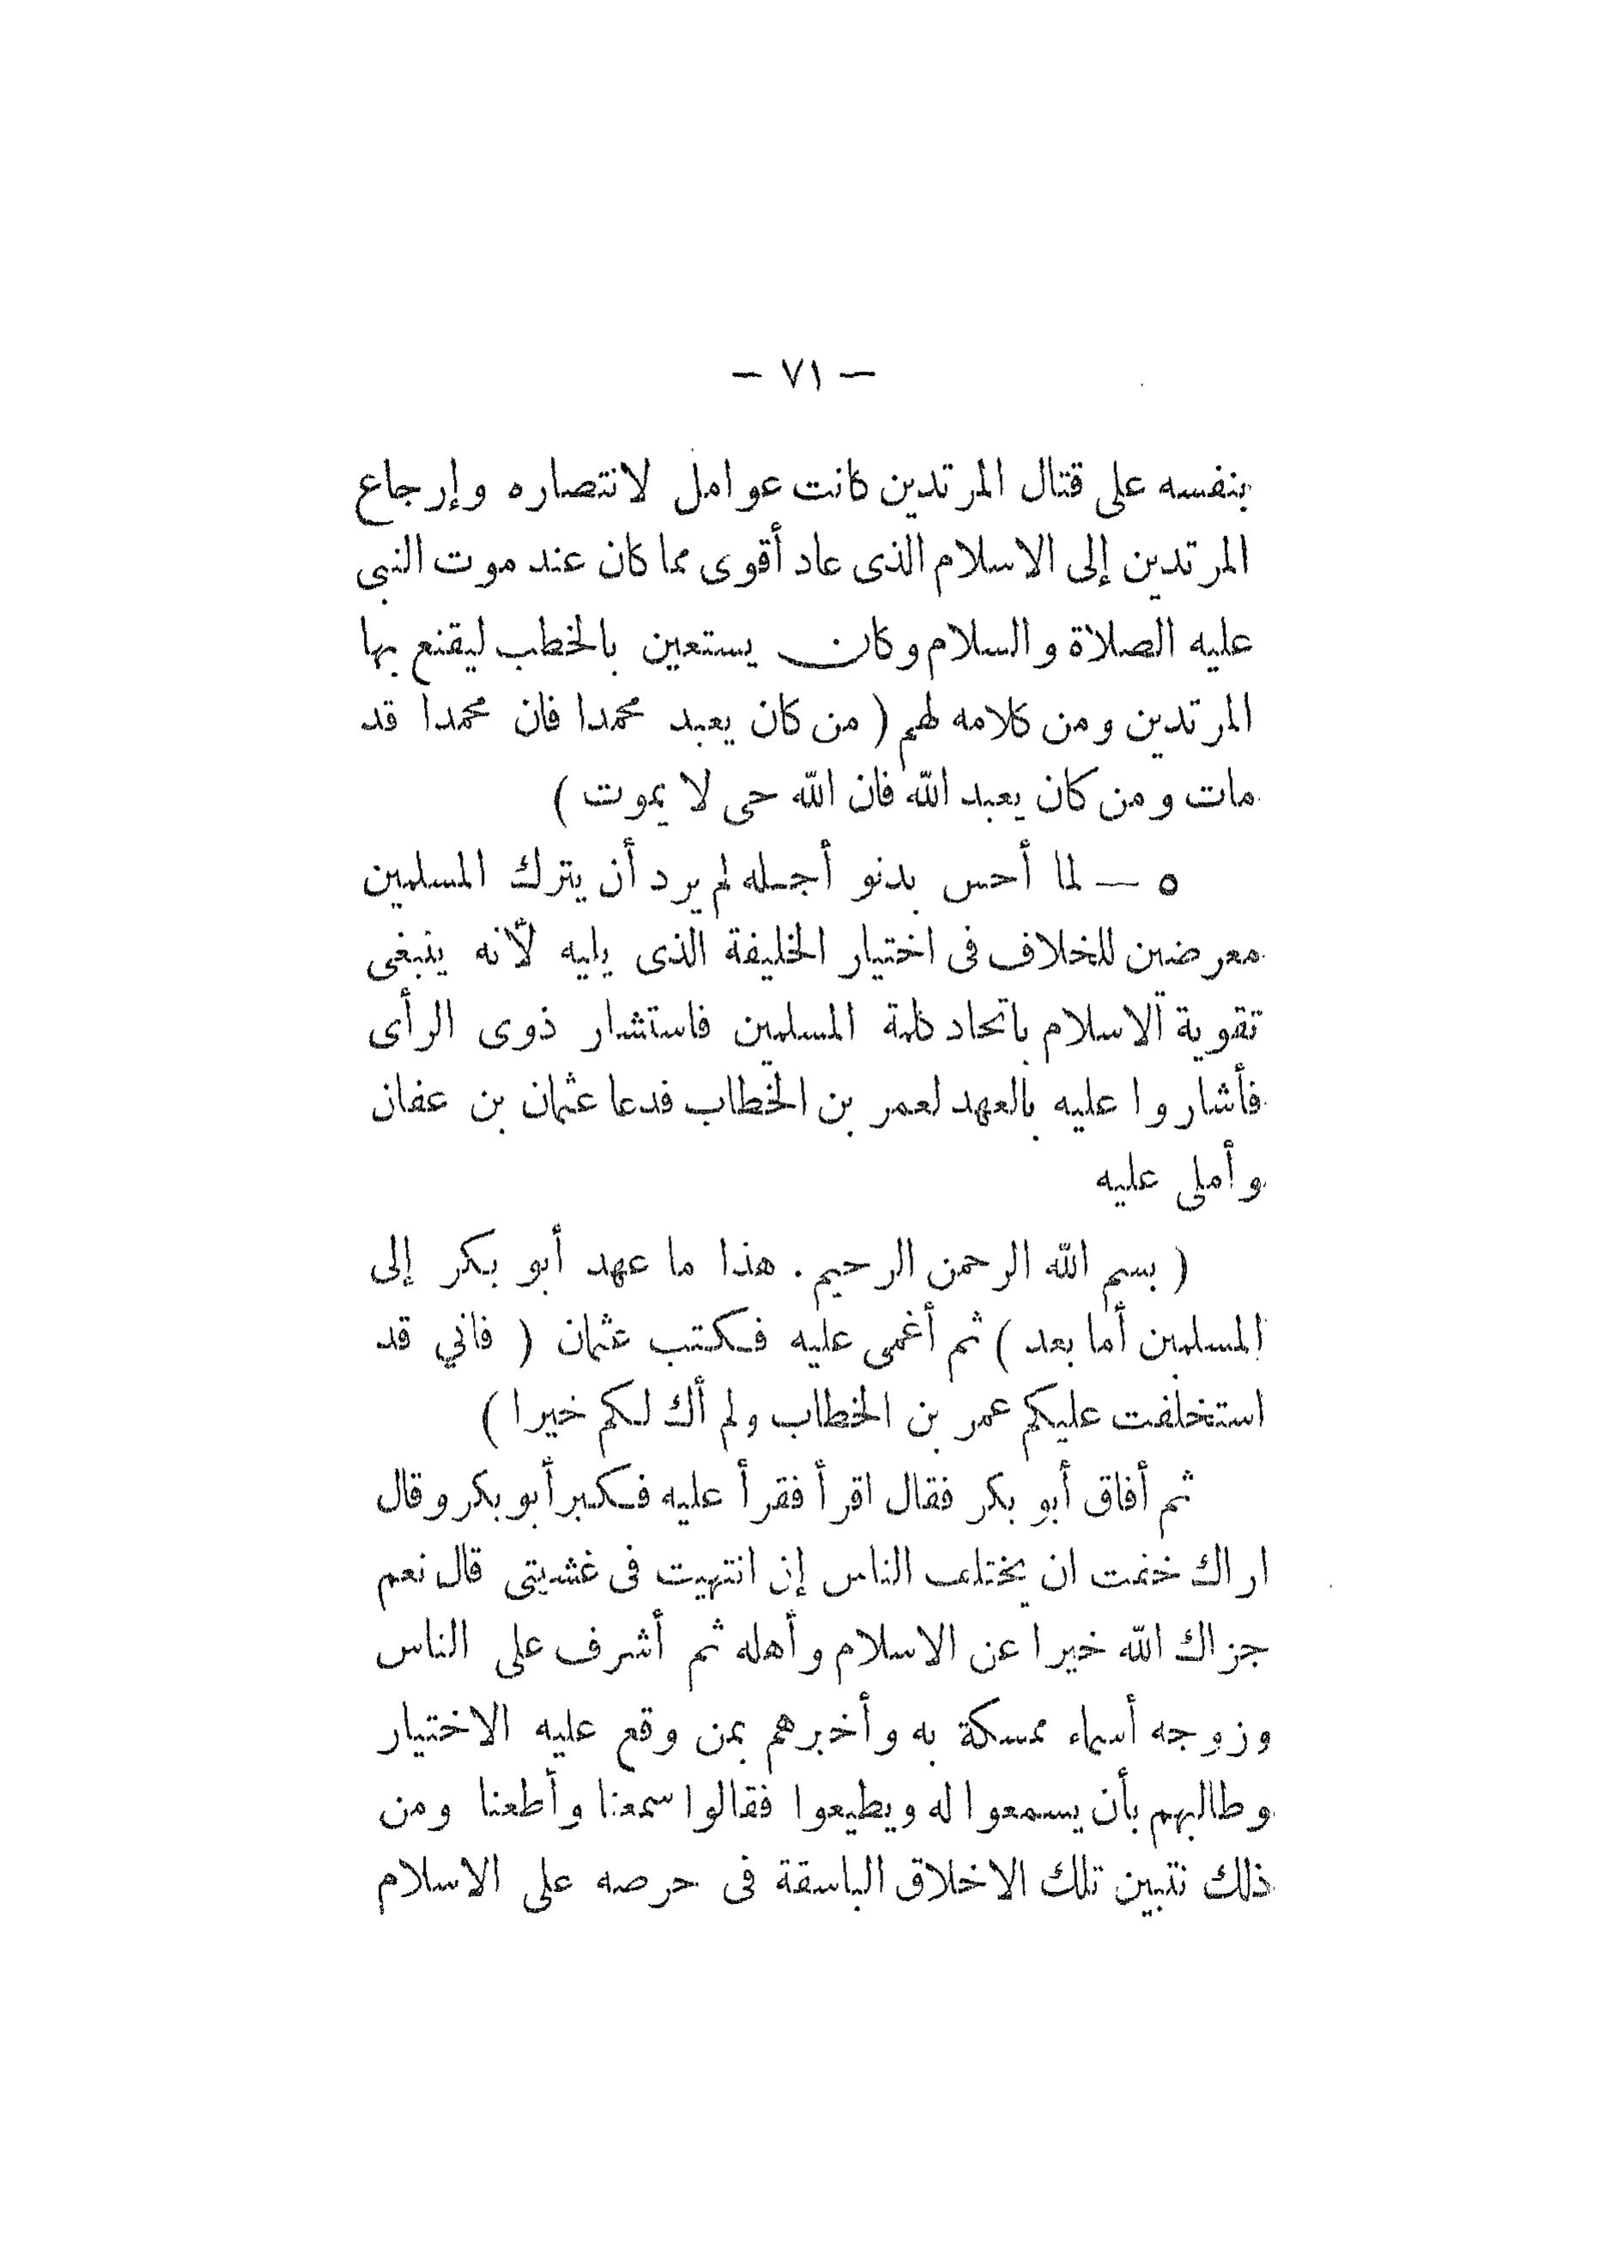 — ٧١ —
بنفسه على قتال المرتدين كانت عوامل لانتصاره وإرجاع
المرتدين إلى الاسلام الذى عاد أقوى مما كان عند موت النبى
عليه الصلاة والسلام وكان يستعين بالخطب ليقنع بها
المرتدين ومن كلامه لهم ( من كان يعبد محمدا فان محمدا قد
مات ومن كان يعبد الله فان الله حى لا يموت )
٥ — لما أحس بدنو أجله لم يرد أن يترك المسلمين
معرضين للخلاف فى اختيار الخليفة الذى يليه لأنه ينبغى
تقوية الاسلام باتحاد كلمة المسلمين فاستشار ذوى الرأى
فأشاروا عليه بالعهد لعمر بن الخطاب فدعا عثمان بن عفان
وأملى عليه
( بسم الله الرحمن الرحيم . هذا ما عهد أبو بكر إلى
المسلمين أما بعد ) ثم أغمى عليه فكتب عثمان ( فاني قد
استخلفت عليكم عمر بن الخطاب ولم أك لكم خيرا )
ثم أفاق أبو بكر فقال اقرأ فقرأ عليه فكبر أبو بكر وقال
اراك خفت ان يختلف الناس إن انتهيت فى غشيتى قال نعم
جزاك الله خيرا عن الاسلام وأهله ثم أشرف على الناس
وزوجه أسماء ممسكة به وأخبرهم بمن وقع عليه الاختيار
وطالبهم بأن يسمعوا له ويطيعوا فقالوا سمعنا وأطعنا ومن
ذلك نتبين تلك الاخلاق الباسقة فى حرصه على الاسلام